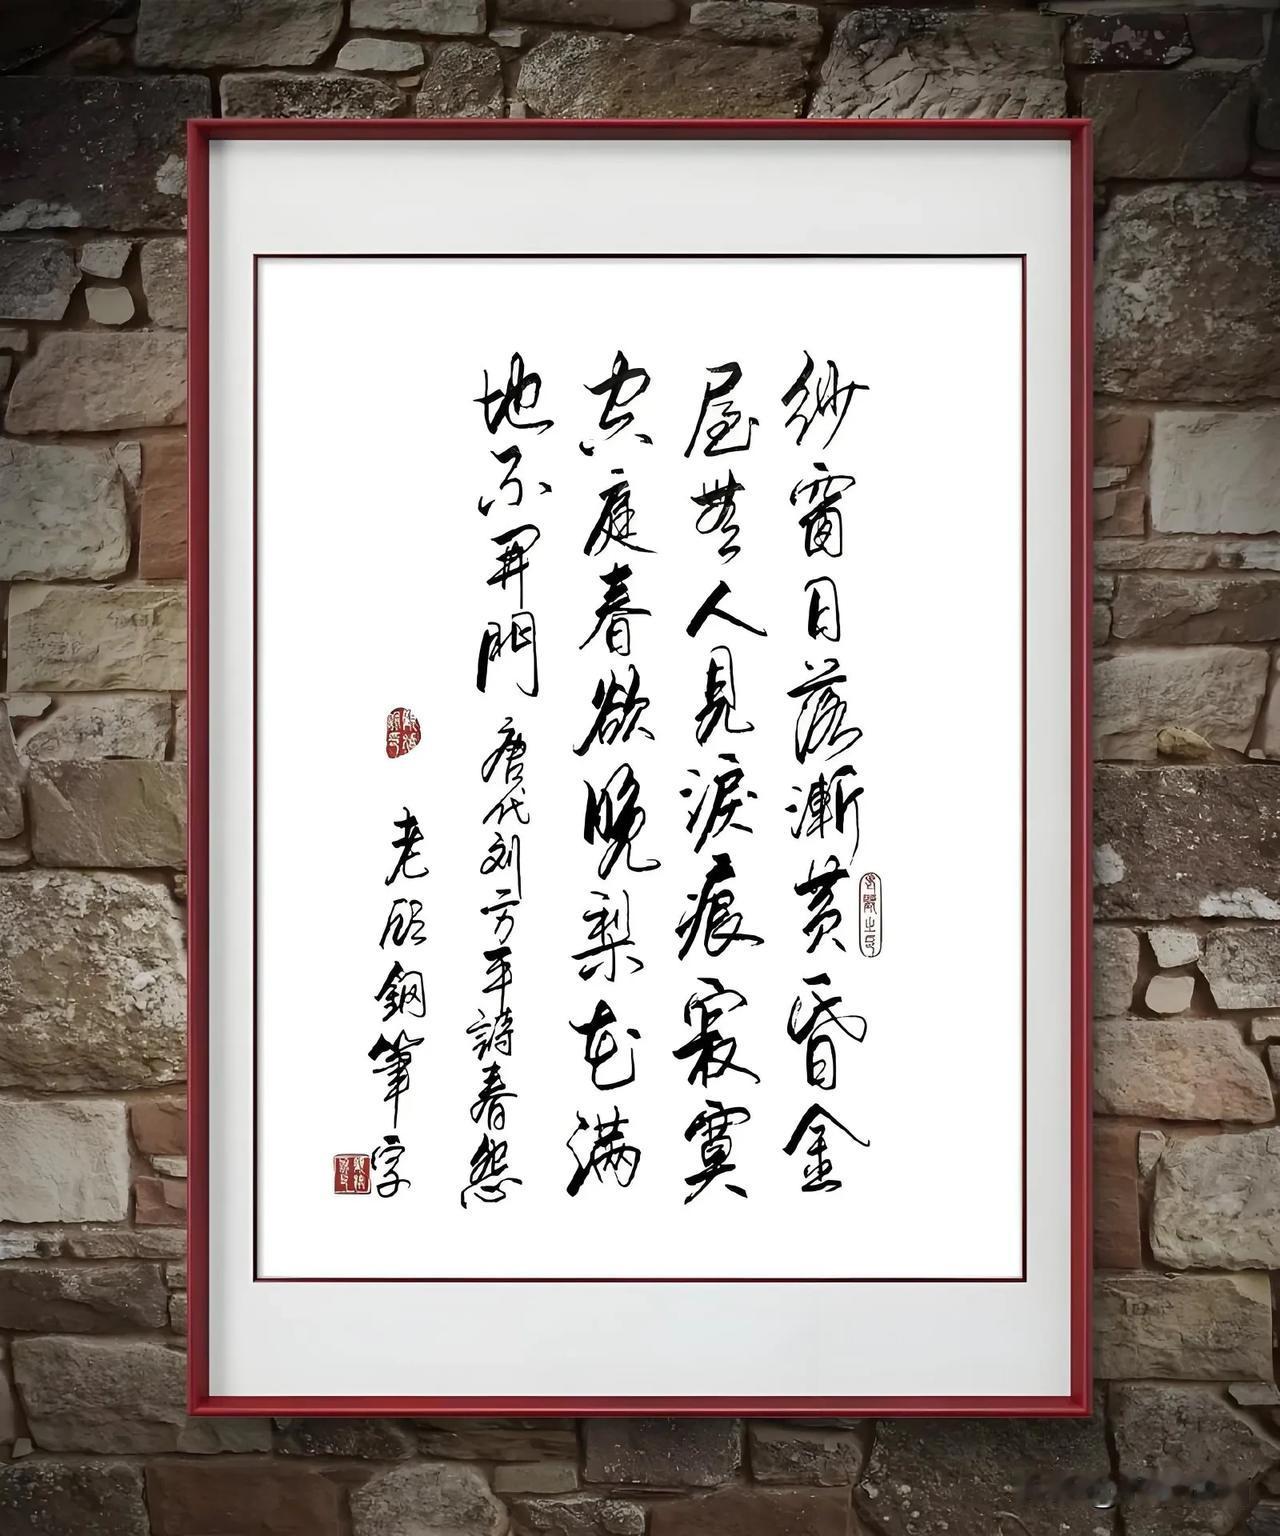 紗窗日落漸黄昏金
屋無人見淚痕寂寞
空庭春欲晚梨花满
地不開門 唐代刘方平詩春怨
老顾鋼筆字